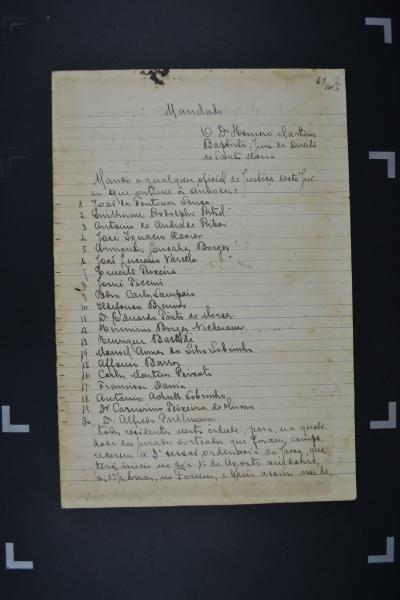 68
Mandado
O Dr Homero Martins
Baptista, Juiz de Direito
de Santa Maria
Mando a qualquer oficial de Justiça deste Jui-
zo que intime á
1 João da Fontoura Souza
2 Guilherme Rodolpho
3 Antonio de Andrade
4 José Ignacio Xavier
5 Armando Gonçalves Borges
6 José Luciano Varella
7 Ernesto Pereira
8 Piccini
9 Carlos Sampaio
10 Ildefonso Brenner
11 Dr Eduardo Pinto de Moraes
12 Borges
13 Henrique
14 Manoel da Silva Sobrinho
15 Affonso Barros
16 Carlos Martins Peixoto
17 Francisco Dania
18 Antonio Sobrinho
19 Dr Teixeira
20 Dr Alfredo
todos residentes nesta cidade, para, na quali-
dade de jurados sorteados que foram, compa-
recerem á 3ª sessão ordinaria do Jury, que
terá inicio no dia 1º de Agosto vindouro,
ás 13 1/2 horas, no Forum, e